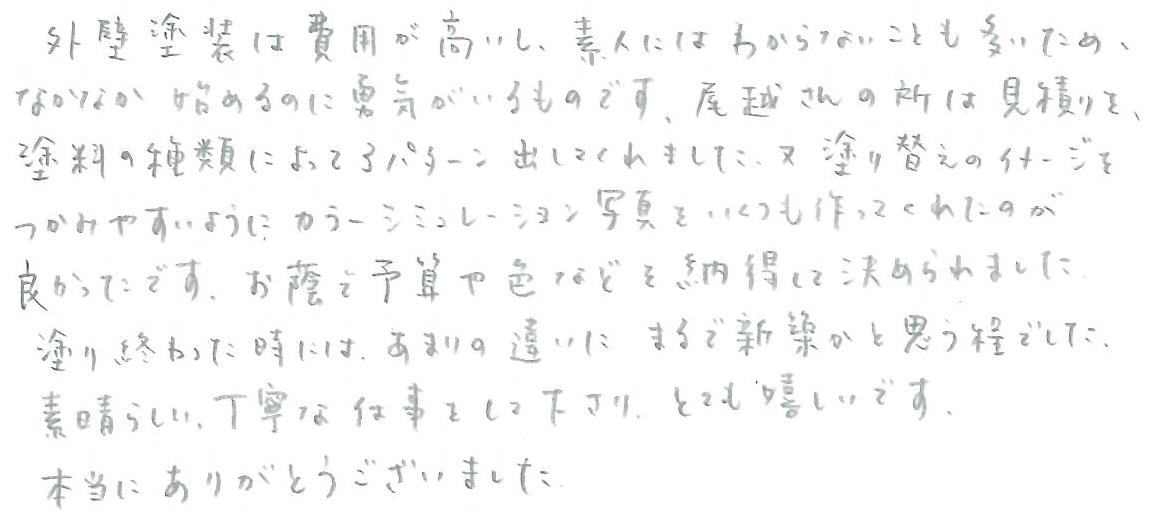 外壁塗装は費用が高いし、素人にはわからないことも多いため、
なかなか始めるのに勇気がいるものです。尾越さんの所は見積りを、
塗料の種類によって3パターン出してくれました。又塗り替えのイメージを
つかみやすいようにカラーシミュレーション写真をいくつも作ってくれたのが
良かったです。お蔭で予算や色などを納得して決められました。
塗り終わった時には、あまりの違いにまるで新築かと思う程でした。
素晴らしい、丁寧な仕事をして下さり、とても嬉しいです。
本当にありがとうございました。